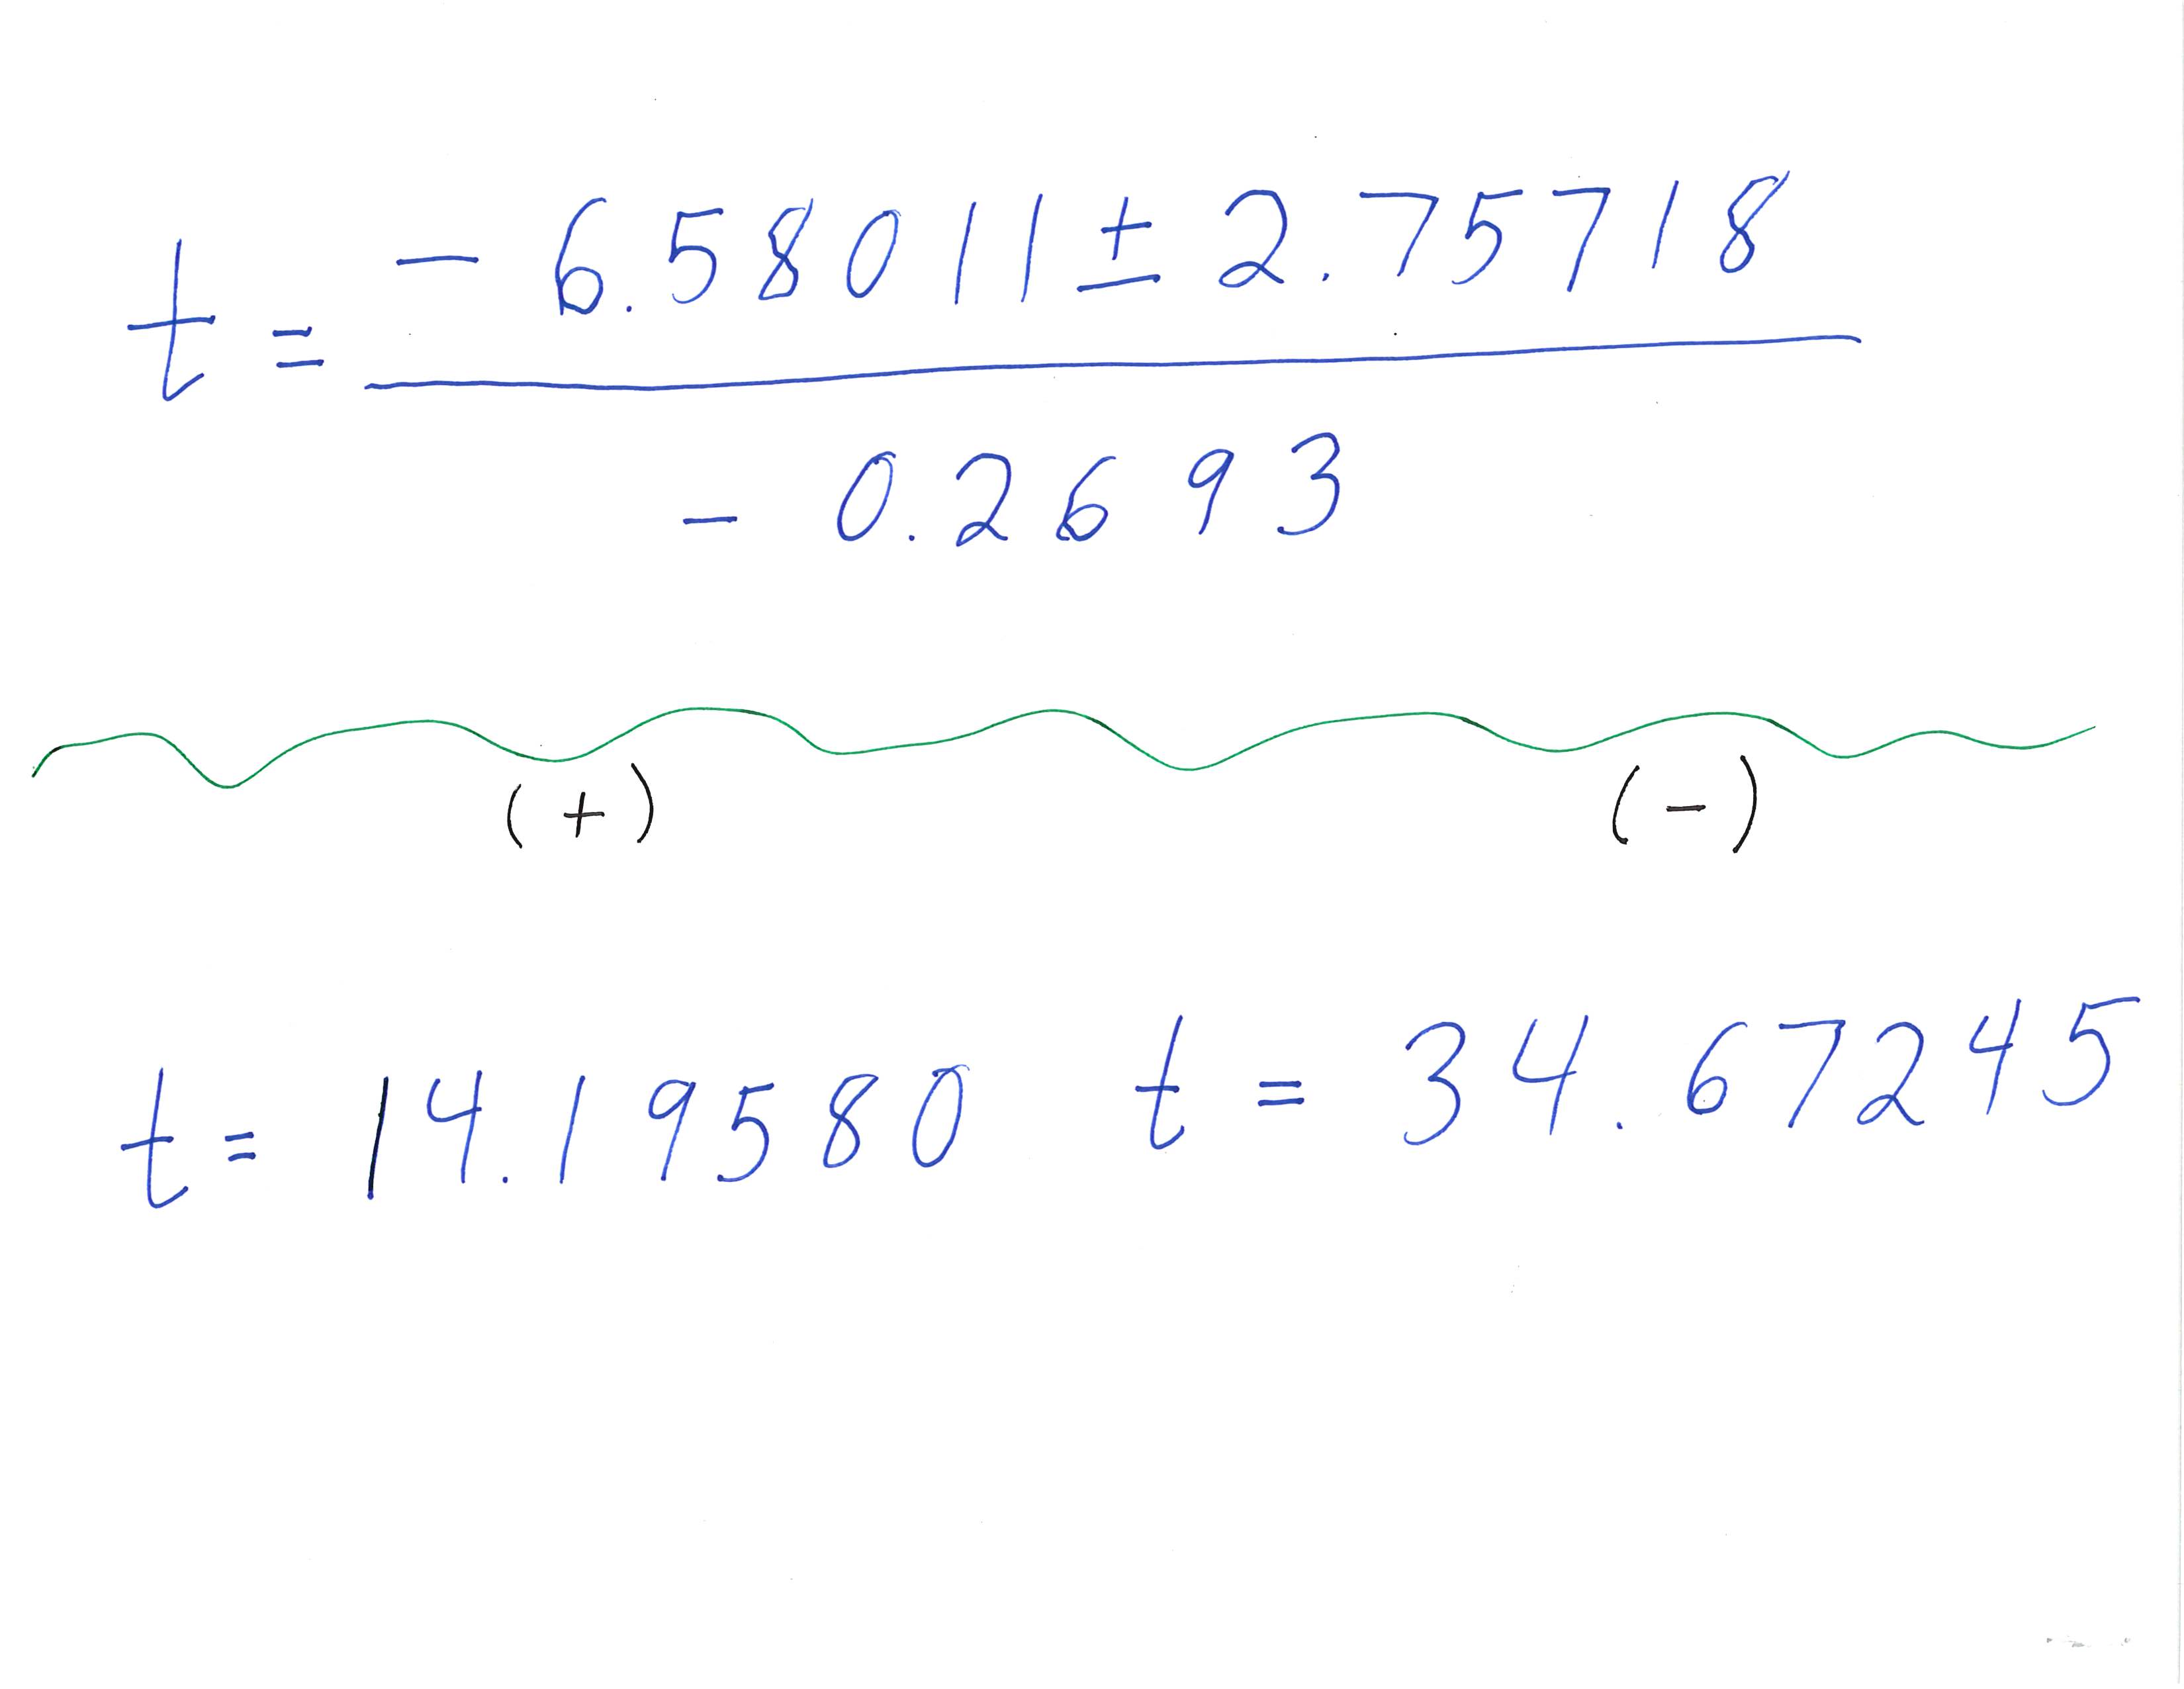 t = - 6.58011 ± 2.75718
- 0.2693
(+) (-)
t = 14.19580 t = 34.67245